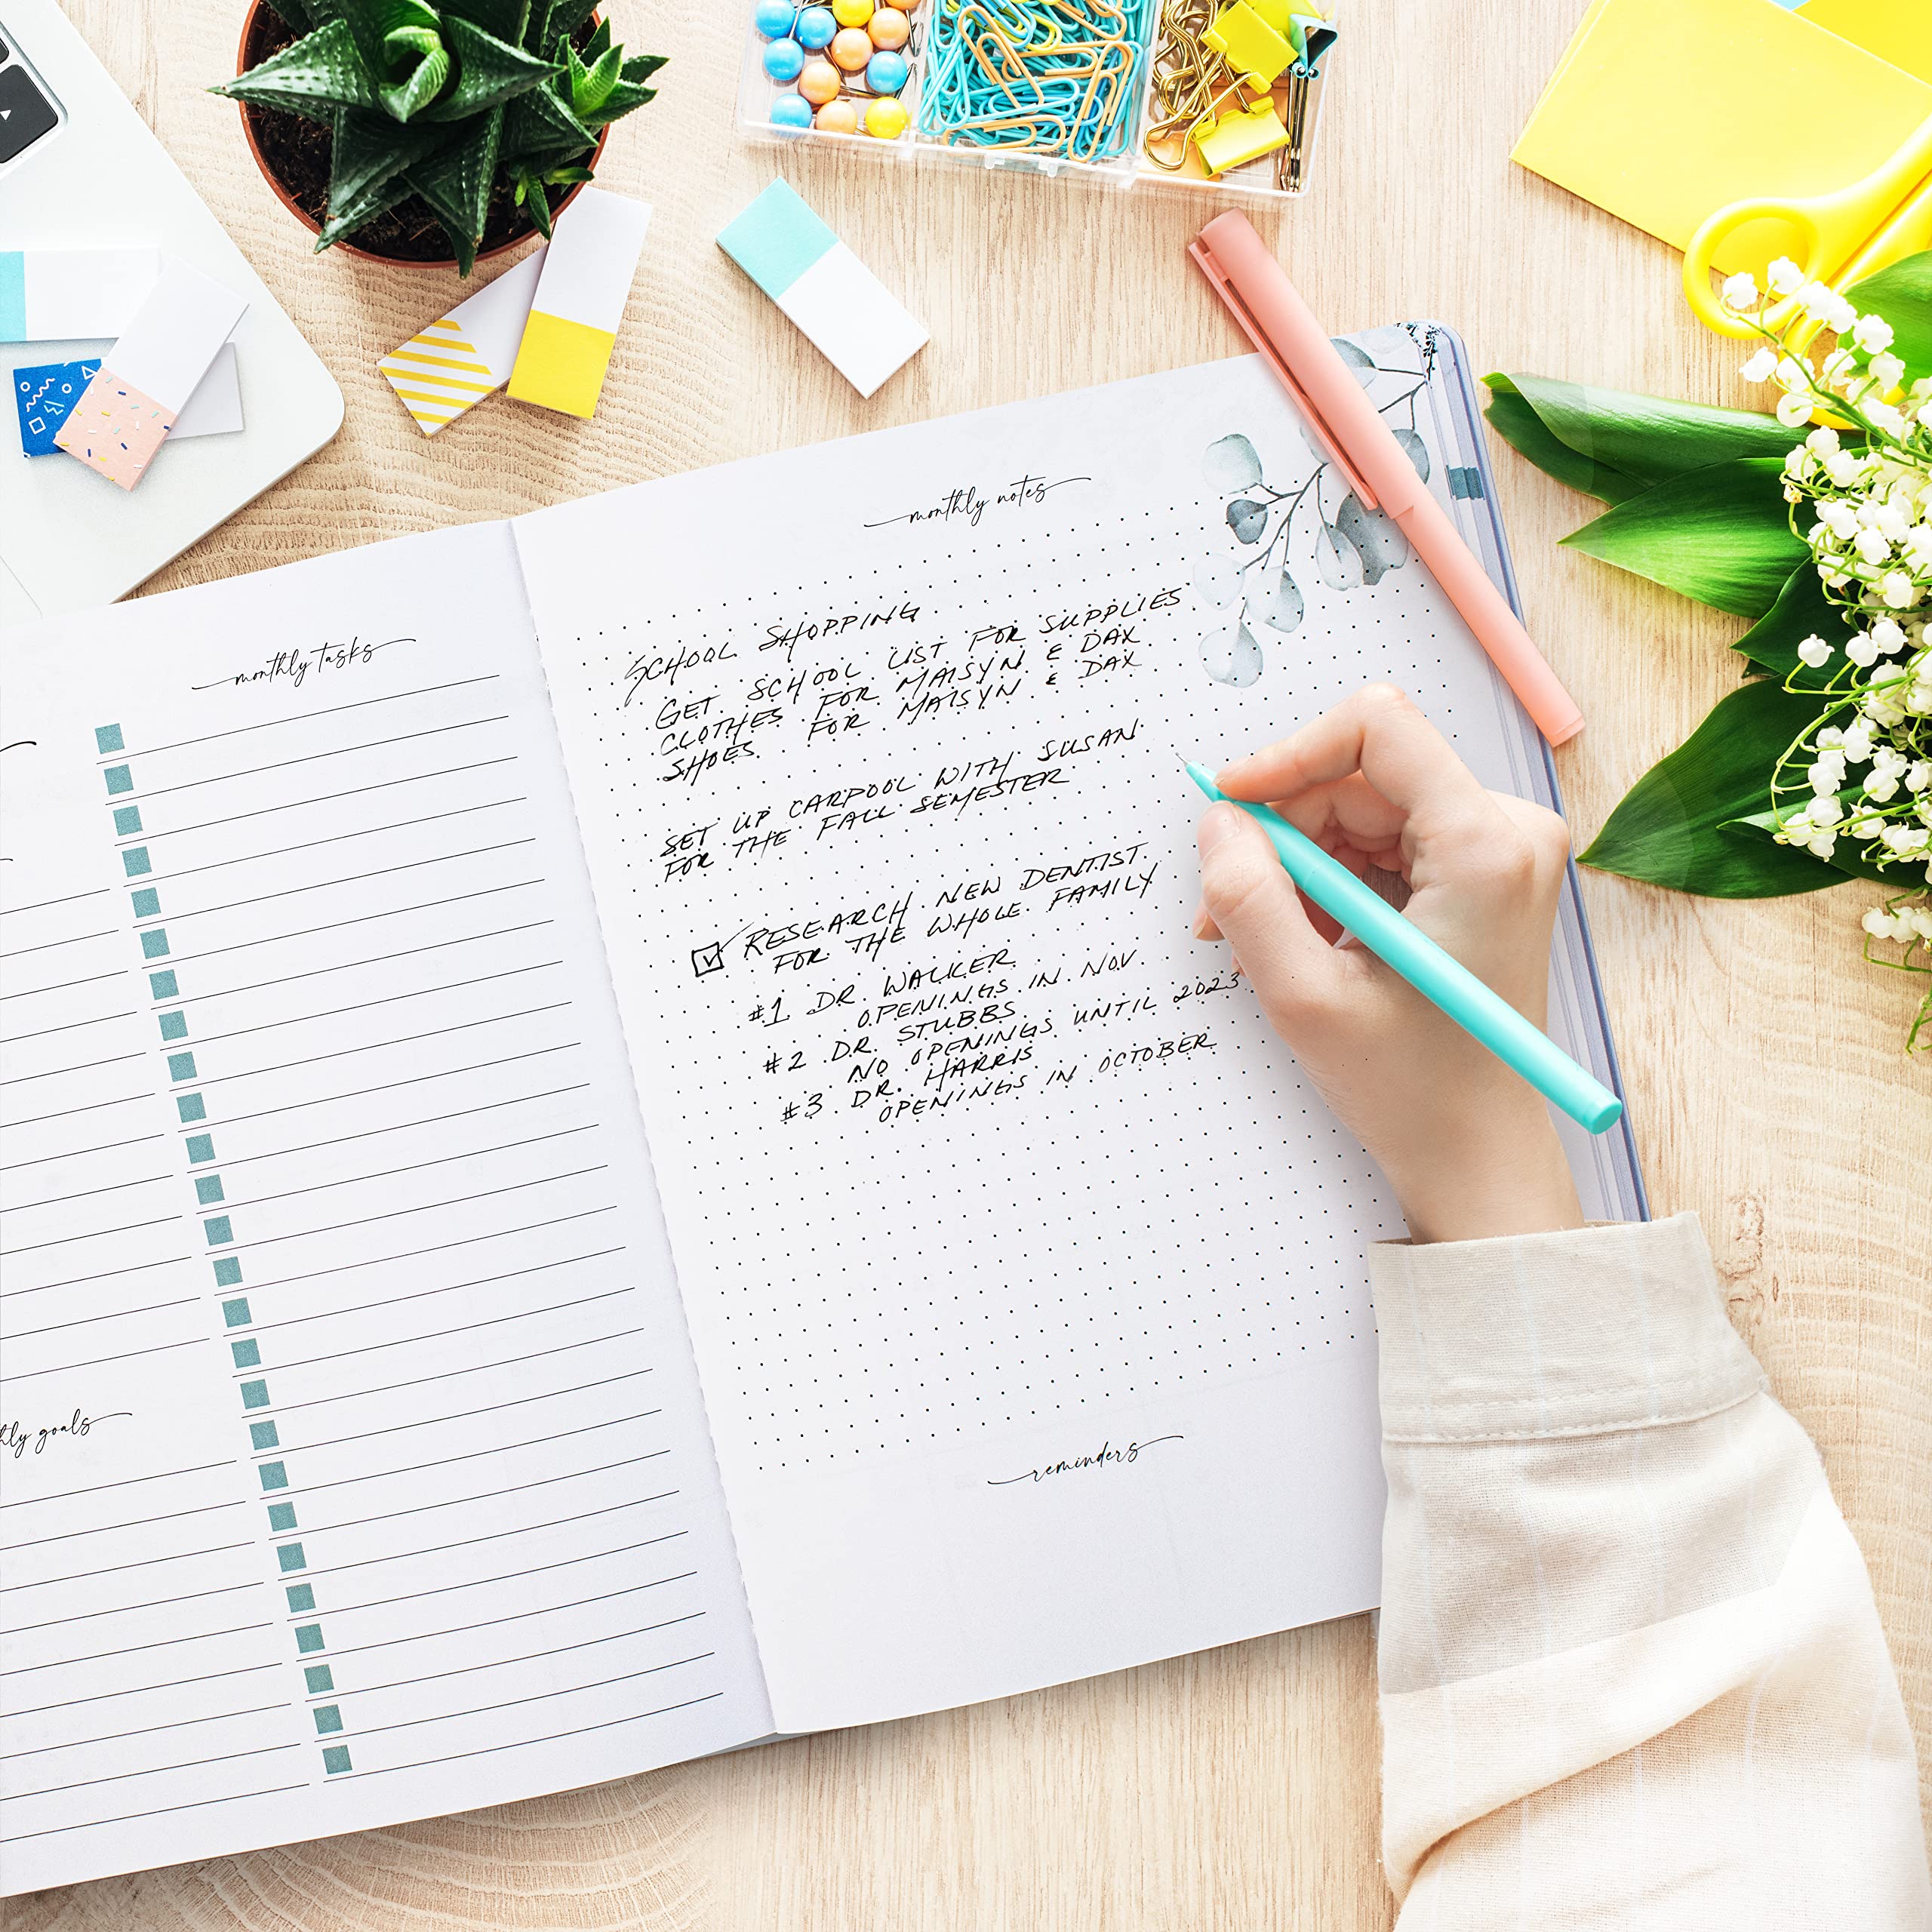 monthly tasks
hly goals
monthly notes
SCHOOL SHOPPING
GET SCHOOL LIST FOR SUPPLIES
CLOTHES FOR MAISYN & DAX
SHOES FOR MAISYN & DAX
SET UP CARPOOL WITH SUSAN
FOR THE FALL SEMESTER
RESEARCH NEW DENTIST
FOR THE WHOLE FAMILY
#1 DR. WALKER
OPENINGS IN NOV.
#2 DR. STUBBS
NO OPENINGS UNTIL 2023
#3 DR. HARRIS
OPENINGS IN OCTOBER
reminders